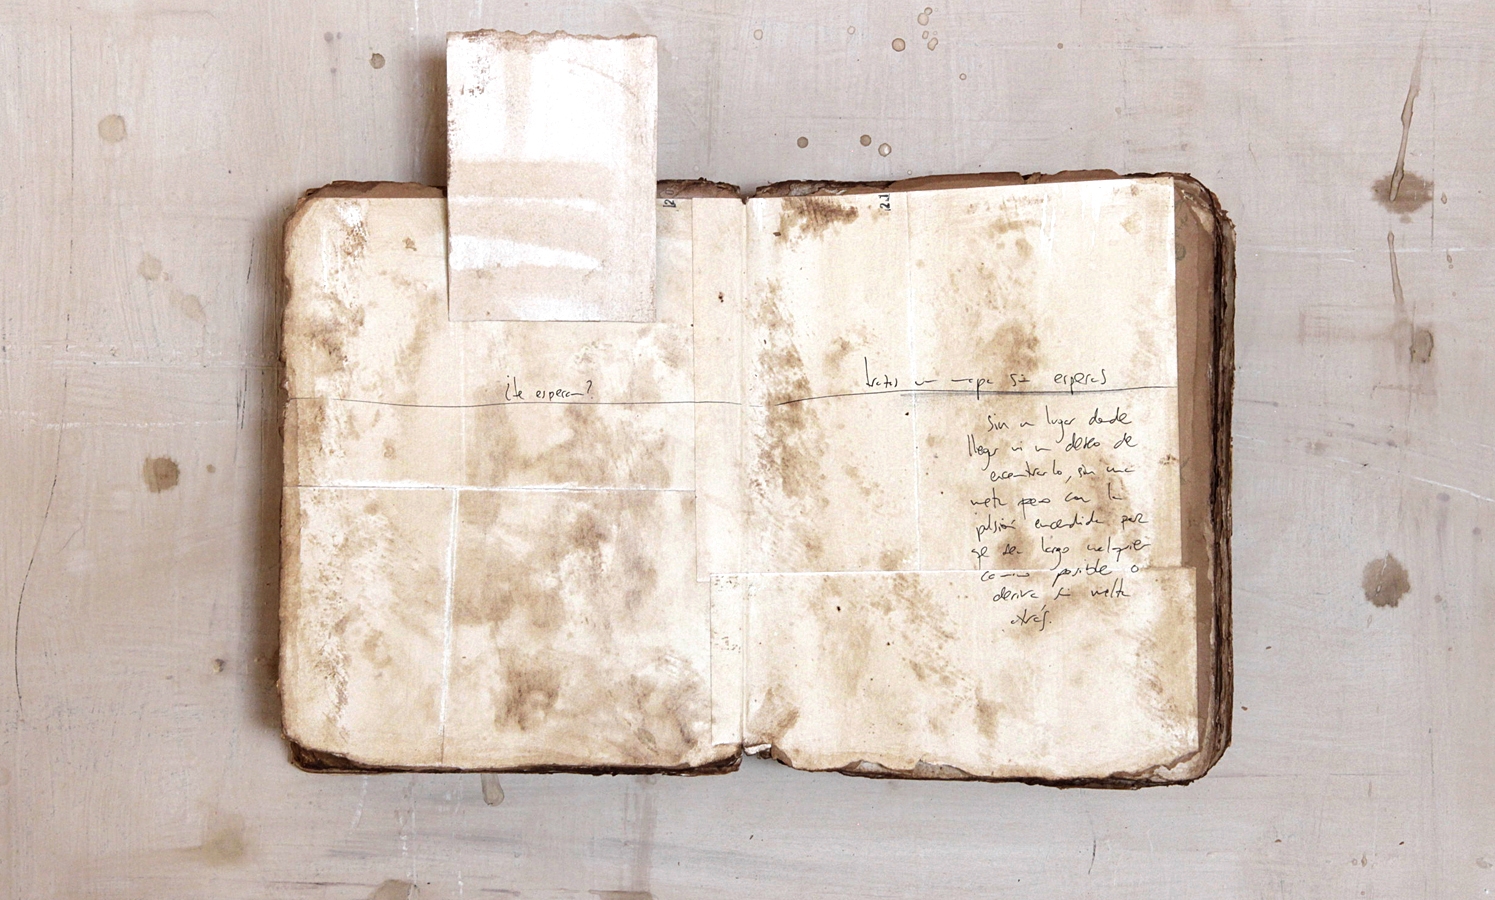 ¿te esperan?
trazas un mapa sin esperas
sin un lugar donde
llegar ni un deseo de
encontrarlo, sin una
meta pero con la
pulsión encendida por
que sea largo cualquier
camino posible o
deriva sin vuelta
atrás.